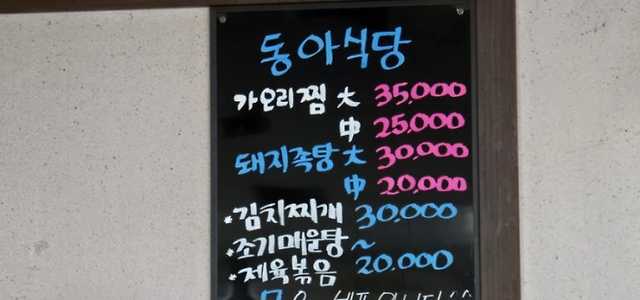 동아식당
가오리찜 大 35,000
中 25,000
돼지족탕 大 30,000
中 20,000
*김치찌개 30,000
*조기매운탕 ~
*제육볶음 20,000